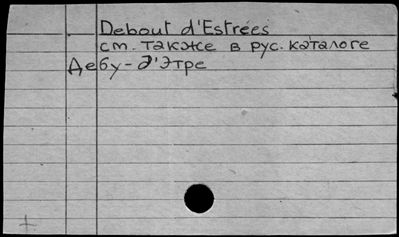 Debout d'Estrées
см. также в рус. каталоге
Дебу-д'Этре